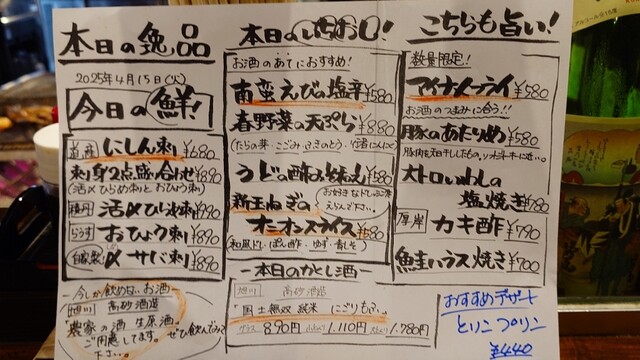 本日の逸品
2025年4月15日(火)
今日の鮮!
道産 にしん刺 ¥680
刺身2点盛り合わせ ¥890
(活〆ひらめ刺とおひょう刺)
積丹 活〆ひらめ刺 ¥990
らうす おひょう刺 ¥890
自家製 〆サバ刺 ¥890
今しか飲めないお酒
旭川 高砂酒造
農家の酒 生原酒。
ご用意してます。ぜひ飲んみて
下さい。
本日のいちおし!
お酒のあてにおすすめ!
南蛮えびの塩辛 ¥580
春野菜の天ぷら ¥880
(たらの芽・こごみ・ふきのとう・行者にんにく)
うどの酢みそ和え ¥580
新玉ねぎの
オニオンスライス ¥580
お好きなドレッシング
えらんで下さい
和風ドレ・ぽん酢・ゆず・青じそ
本日のかとし酒
旭川 高砂酒造
国士無双 純米 にごりもろみ。
グラス 890円 1,110円 1,780円
こちらも旨い!
数量限定!
アイナメフライ ¥580
お酒のつまみに合う!!
豚のあたりめ ¥580
大トロいわしの
塩焼き ¥980
厚岸 カキ酢 ¥790
鮭ハラス焼き ¥700
おすすめデザート
とりこプリン
¥440